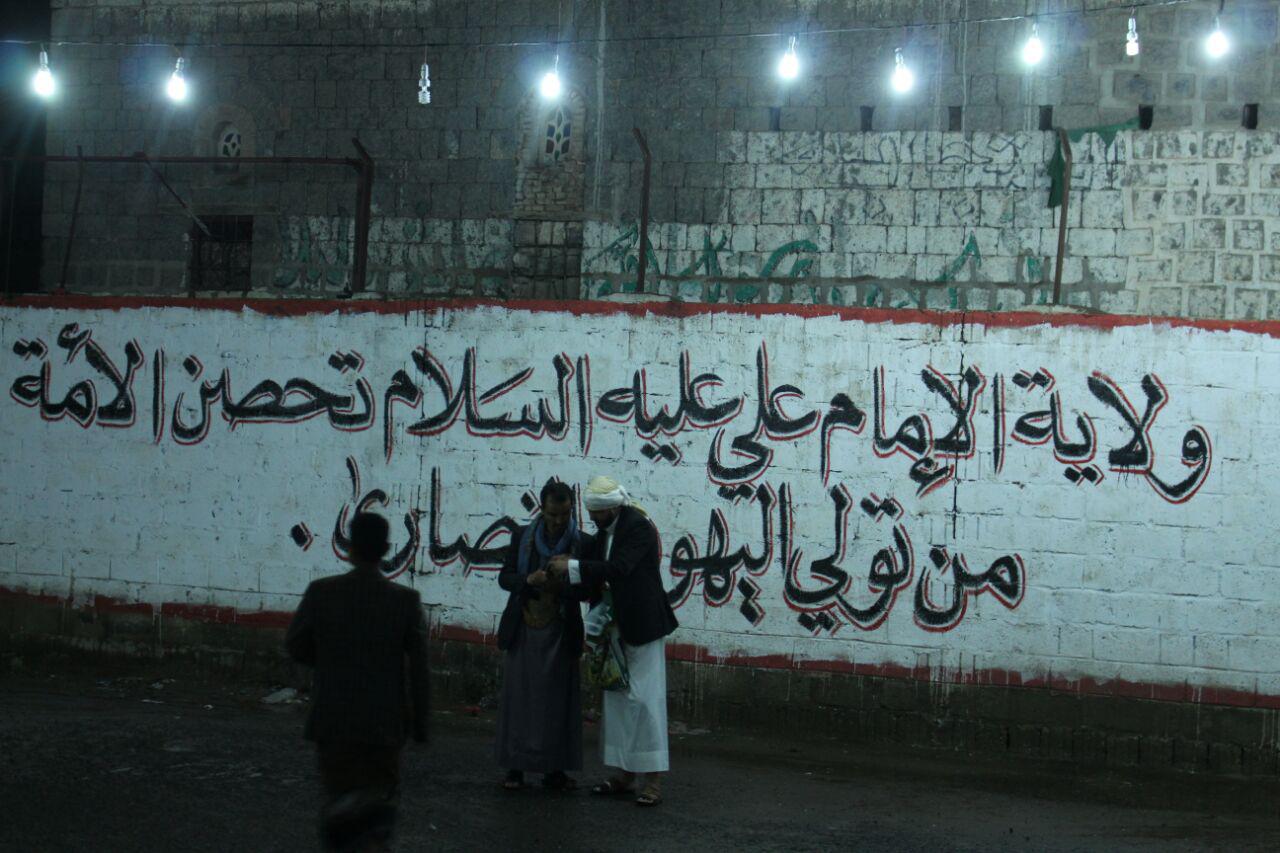 ولاية الإمام علي عليه السلام تحصن الأمة
من تولي اليهود النصارى.